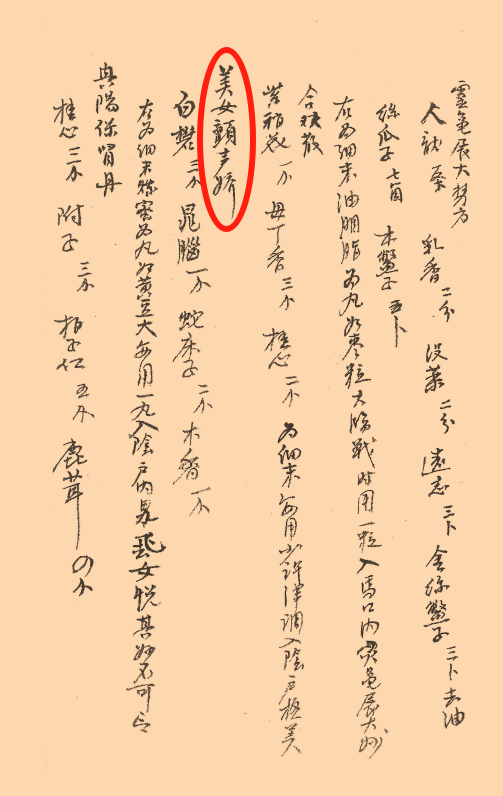 靈龜展大勢方
人龍 乳香二分 沒藥二分 遠志三卜 金絲鱉子三卜去油
絲瓜子七個 木鱉子五卜
右為細末油胭脂為丸如棗粒大臨戰時用一粒入馬口內灵龜展大妙
合歡散
母丁香三分 桂心二分 為細末每用少許津調入陰戶極美
美女顫声嬌
白礬三分 龍腦一分 蛇床子二分 木香一分
右為細末煉蜜為丸如黃豆大每用一丸入陰戶內男飛女悅其妙不可言
興陽保腎丹
桂心三分 附子三分 柏子仁五分 鹿茸